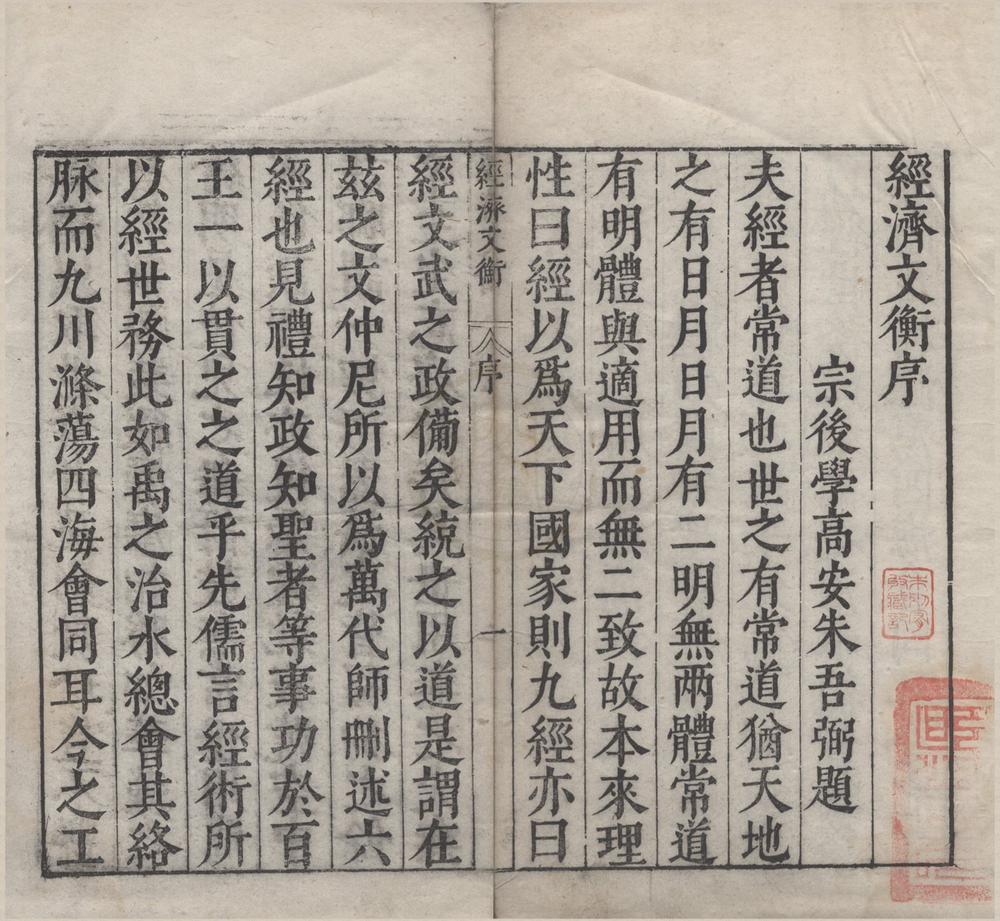 經濟文衡序
宗後學高安朱吾弼題
夫經者常道也世之有常道猶天地
之有日月日月有二明無兩體常道
有明體與適用而無二致故本來理
性曰經以爲天下國家則九經亦曰
經濟文衡
序
一
經文武之政備矣統之以道是謂在
玆之文仲尼所以爲萬代師刪述六
經也見禮知政知聖者等事功於百
王一以貫之之道乎先儒言經術所
以經世務此如禹之治水總會其絡
脉而九川滌蕩四海會同耳今之工